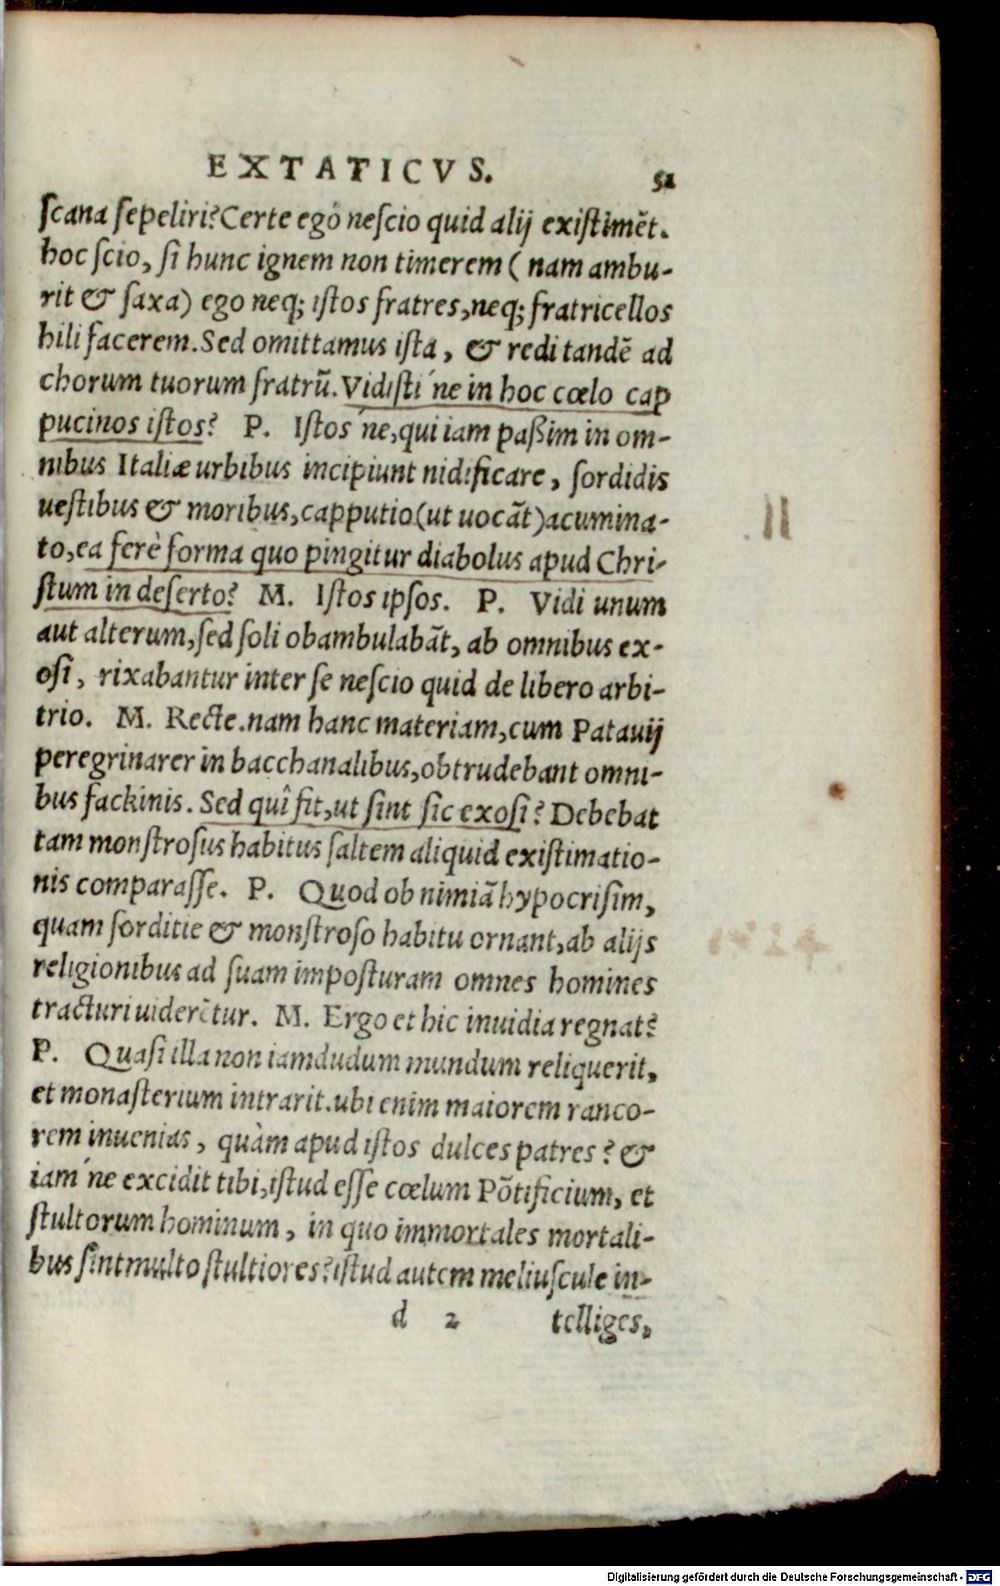 EXTATICVS. 51
scana sepeliri? Certe ego nescio quid alij existimēt.
hoc scio, si hunc ignem non timerem ( nam ambu-
rit & saxa) ego neq; istos fratres, neq; fratricellos
hili facerem. Sed omittamus ista, & redi tandē ad
chorum tuorum fratrū. Vidisti´ne in hoc cœlo cap
pucinos istos? P. Istos´ne, qui iam paßim in om-
nibus Italiæ urbibus incipiunt nidificare, sordidis
uestibus & moribus, capputio (ut uocāt) acumina-
to, ea ferè forma quo pingitur diabolus apud Chri-
stum in deserto? M. Istos ipsos. P. Vidi unum
aut alterum, sed soli obambulabāt, ab omnibus ex-
osi, rixabantur inter se nescio quid de libero arbi-
trio. M. Recte. nam hanc materiam, cum Patauij
peregrinarer in bacchanalibus, obtrudebant omni-
bus fackinis. Sed quî fit, ut sint sic exosi? Debebat
tam monstrosus habitus saltem aliquid existimatio-
nis comparasse. P. Quod ob nimiā hypocrisim,
quam sorditie & monstroso habitu ornant, ab alijs
religionibus ad suam imposturam omnes homines
tracturi uiderētur. M. Ergo et hic inuidia regnat?
P. Quasi illa non iamdudum mundum reliquerit,
et monasterium intrarit. ubi enim maiorem ranco-
rem inuenias, quàm apud istos dulces patres? &
iam´ne excidit tibi, istud esse cœlum Pōtificium, et
stultorum hominum, in quo immortales mortali-
bus sint multo stultiores? istud autem meliuscule in-
d 2 telliges,
Digitalisierung gefördert durch die Deutsche Forschungsgemeinschaft - DFG